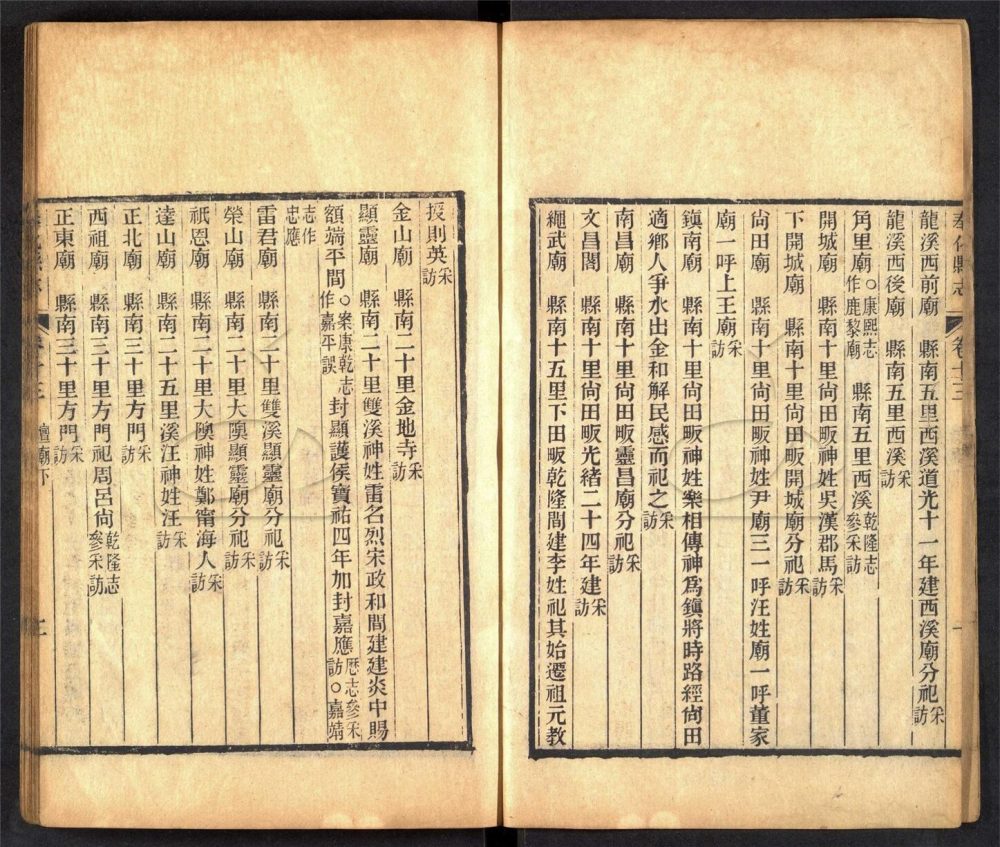 奉化縣志 卷十三 一
龍溪西前廟 縣南五里西溪道光十一年建西溪廟分祀采訪
龍溪西後廟 縣南五里西溪采訪
角里廟○康熙志作鹿黎廟 縣南五里西溪乾隆志參采訪
開城廟 縣南十里尙田畈神姓吳漢郡馬采訪
下開城廟 縣南十里尙田畈開城廟分祀采訪
尙田廟 縣南十里尙田畈神姓尹廟三一呼汪姓廟一呼董家
廟一呼上王廟采訪
鎭南廟 縣南十里尙田畈神姓樂相傳神爲鎭將時路經尙田
適鄉人爭水出金和解民感而祀之采訪
南昌廟 縣南十里尙田畈靈昌廟分祀采訪
文昌閣 縣南十里尙田畈光緒二十四年建采訪
繩武廟 縣南十五里下田畈乾隆間建李姓祀其始遷祖元教
授則英采訪
金山廟 縣南二十里金地寺采訪
顯靈廟 縣南二十里雙溪神姓雷名烈宋政和間建建炎中賜
額端平間○案康乾志作嘉平誤封顯護侯寶祐四年加封嘉應歷志參采訪○嘉靖
志作忠應
雷君廟 縣南二十里雙溪顯靈廟分祀采訪
榮山廟 縣南二十里大隩顯靈廟分祀采訪
祇恩廟 縣南二十里大隩神姓鄭甯海人采訪
達山廟 縣南二十五里溪汪神姓汪采訪
正北廟 縣南三十里方門采訪
西祖廟 縣南三十里方門祀周呂尙乾隆志參采訪
正東廟 縣南三十里方門采訪
壇廟下